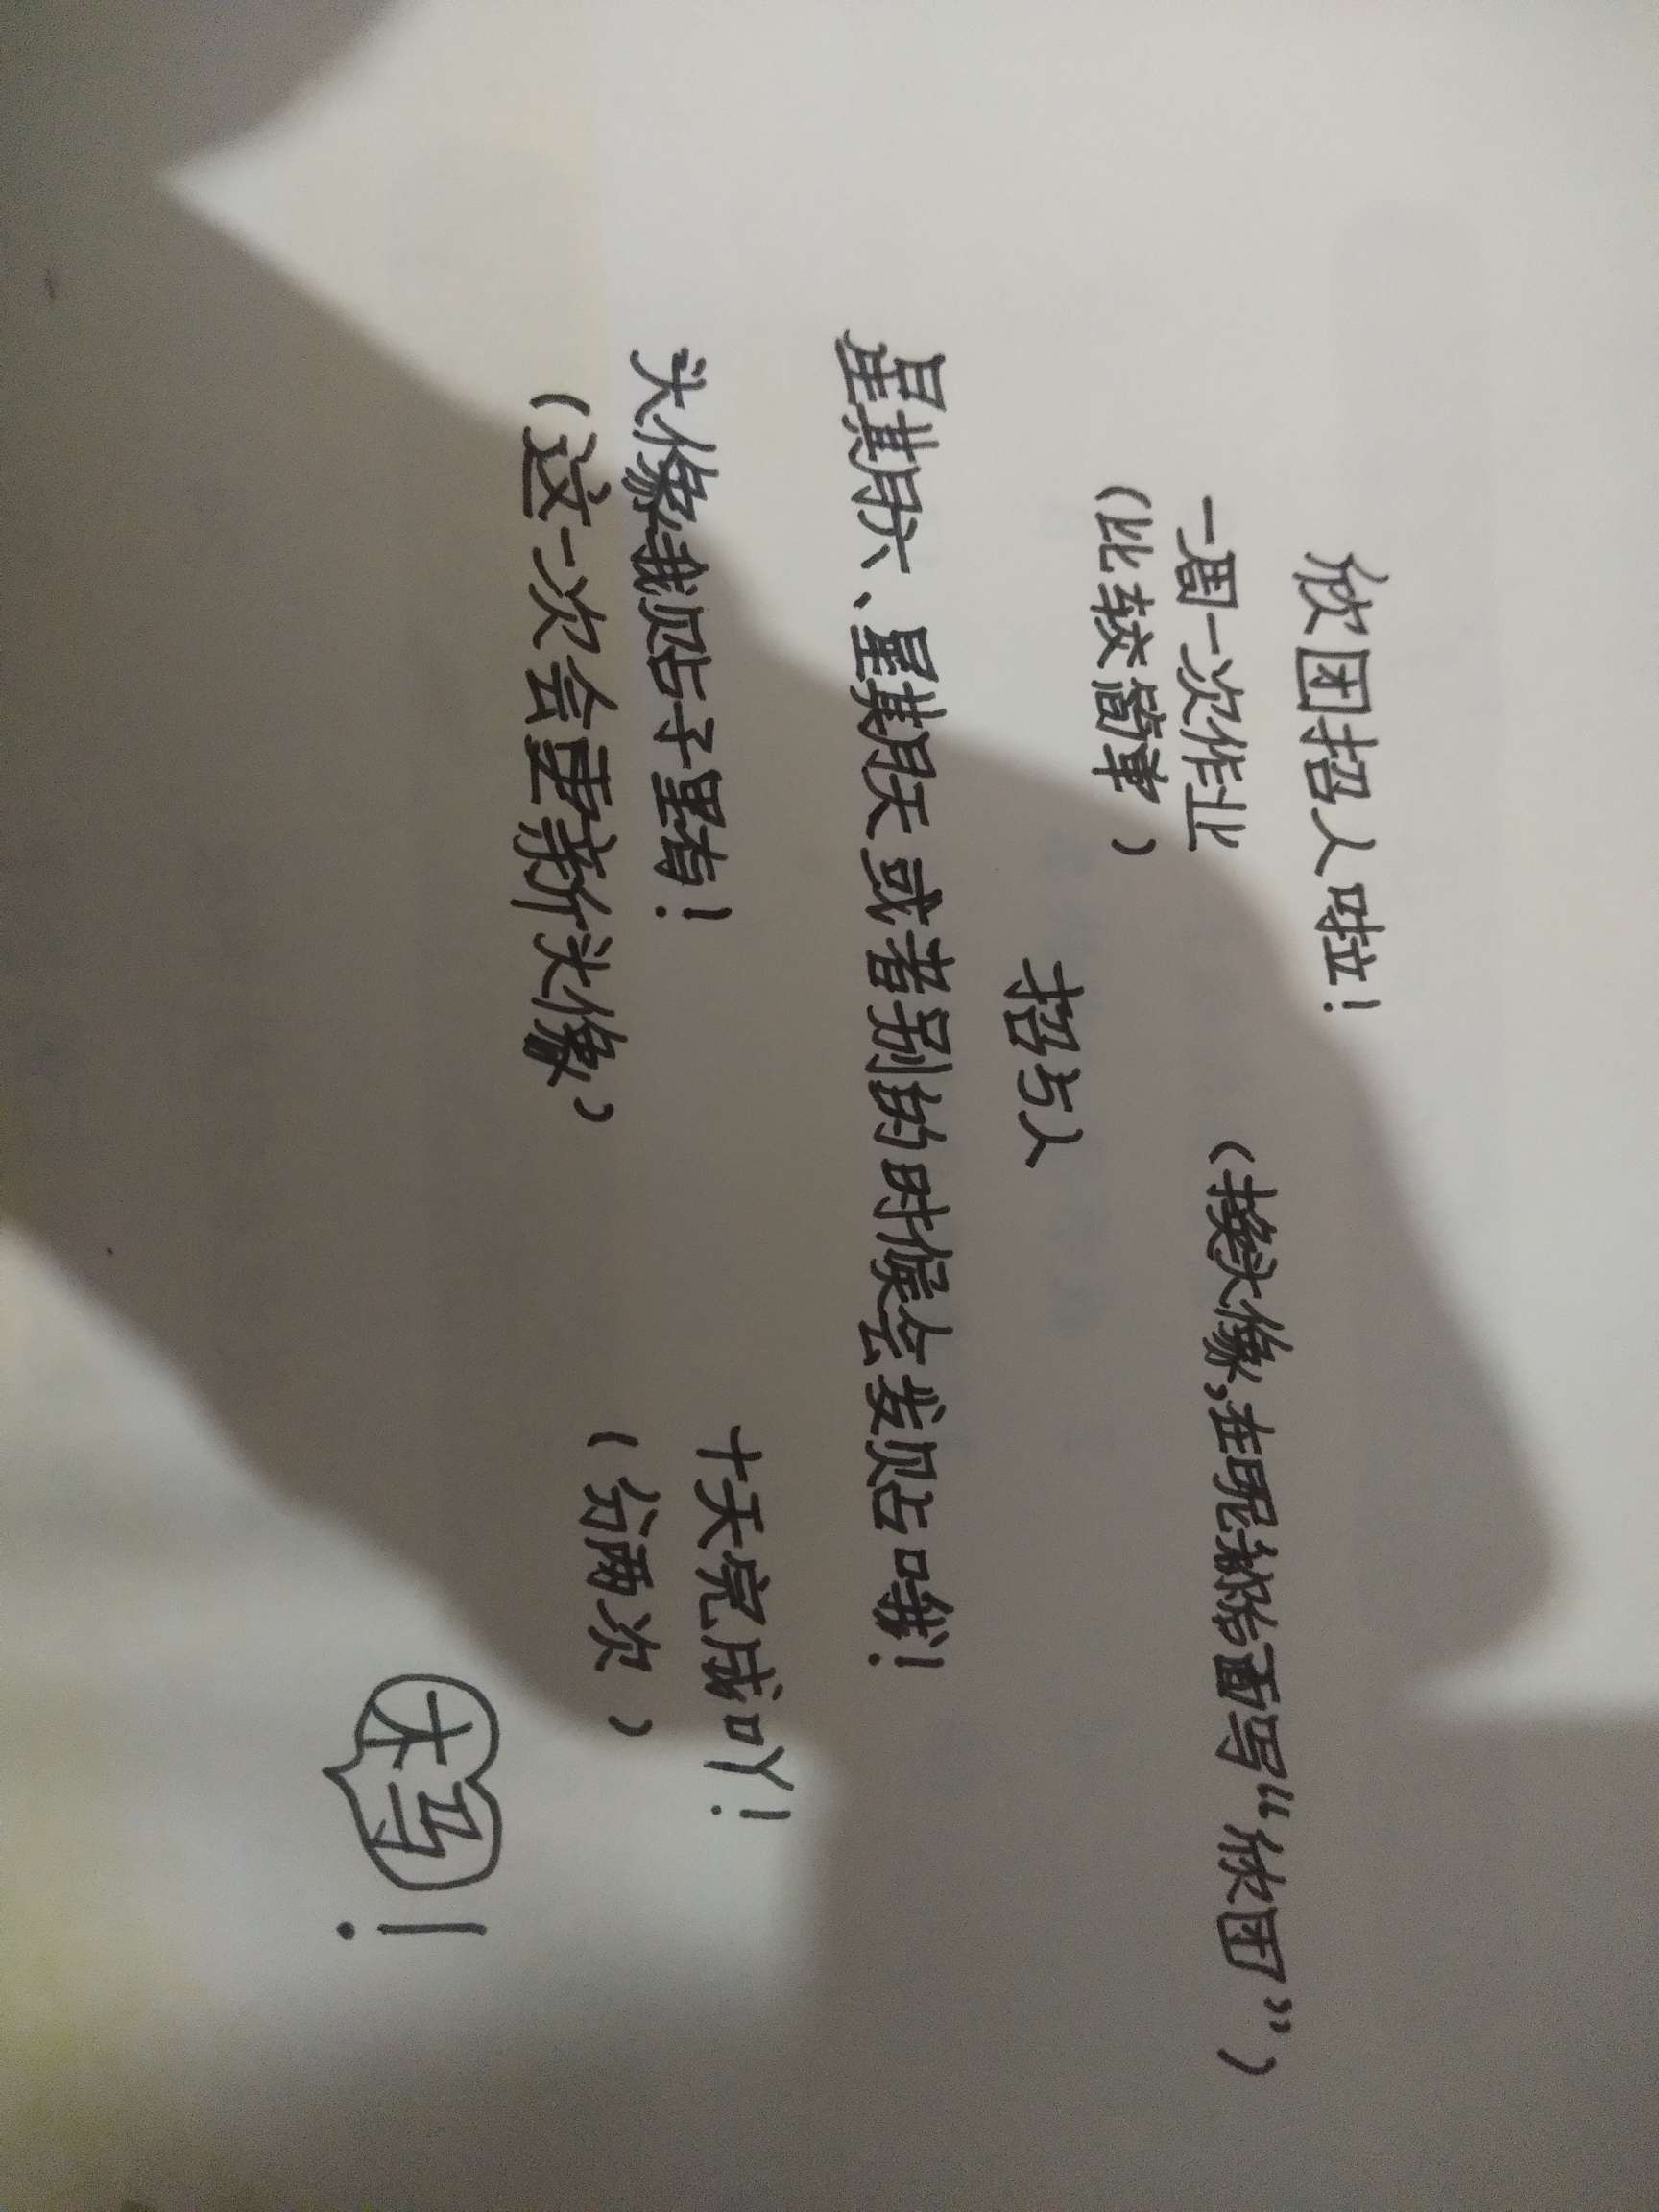 欣团招人啦!
一周一次作业
(比较简单)
(换头像,在昵称后面写“欣团”)
招5人
星期六、星期天或者别的时候会发贴哦!
头像我贴子里有!
(这一次会更新头像)
十天完成吖!
(分两次)
木马
!